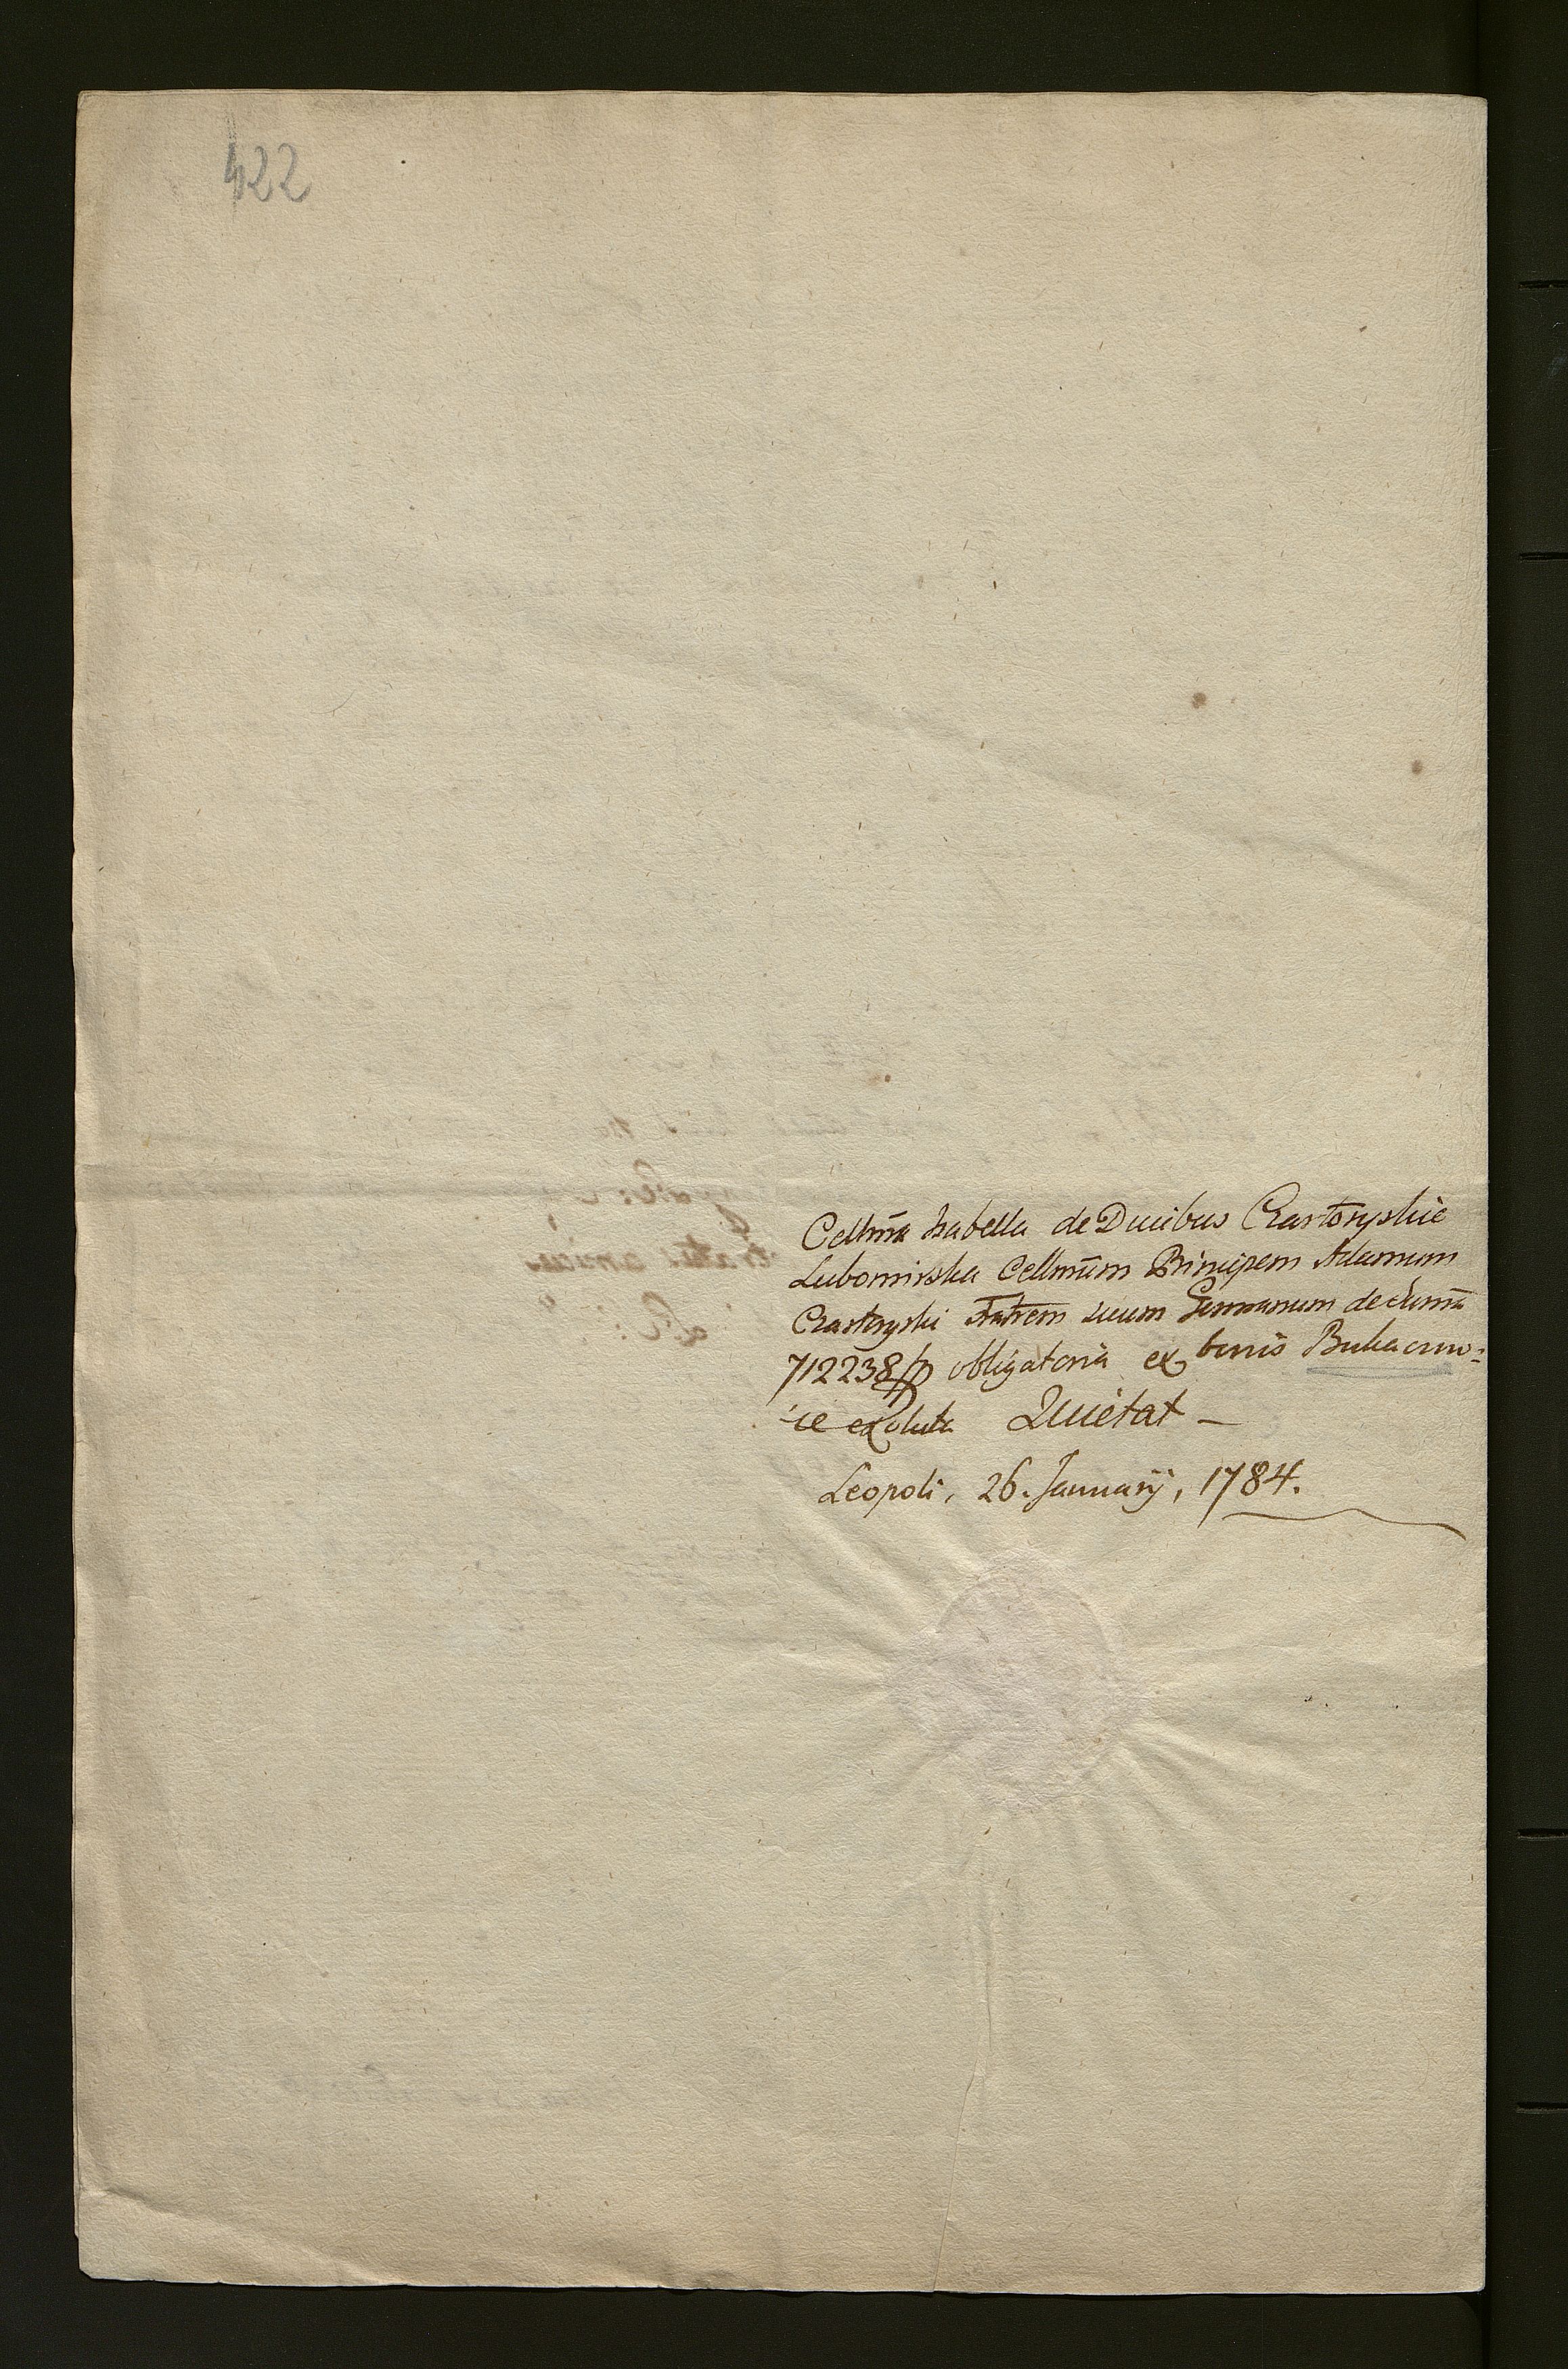 422
Cellm̃a Isabella de Ducibus Czartoryskie
Lubomirska Cellmũm Principem Adamum
Czartoryski Fratrem suum Germanum de sum̃a
712238 fp obligatoria ex bonis Bukacow=
ce exoluta Quietat —
Leopoli, 26. Januarij, 1784.